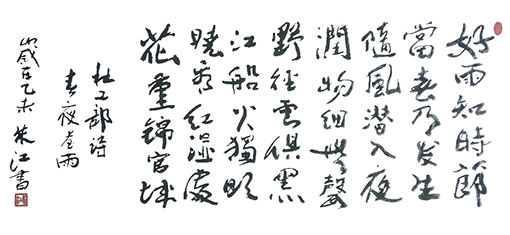 好雨知時節
當春乃发生
隨風潜入夜
潤物細無聲
野徑雲俱黑
江船火獨明
曉看紅湿處
花重錦官城
杜工部詩
春夜喜雨
歲在乙未 朱江書